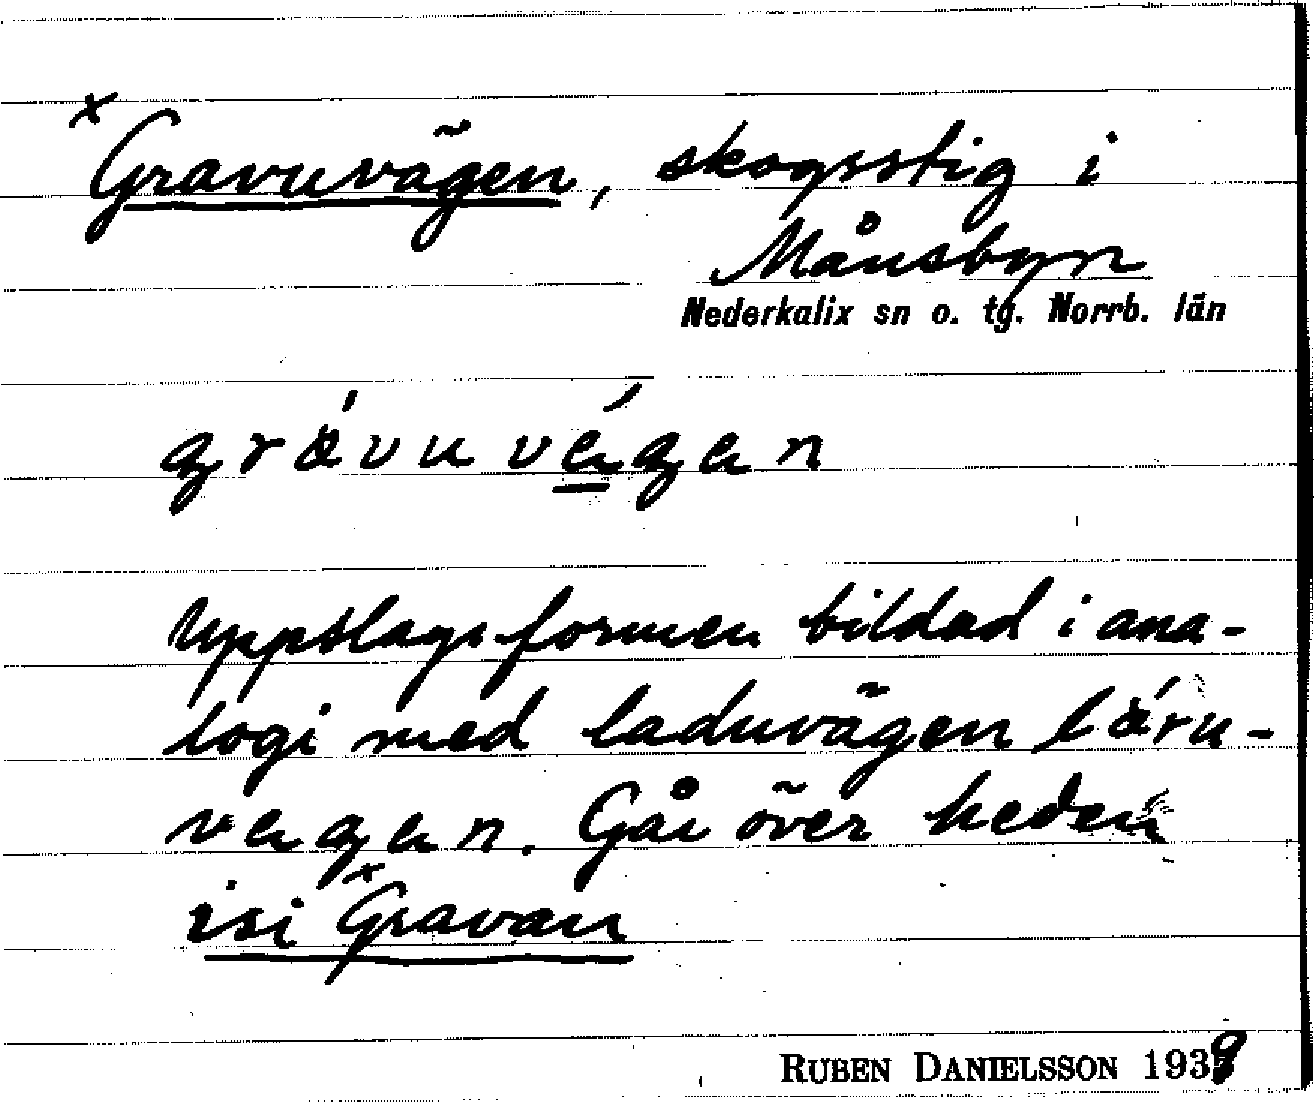 x Gravuvägen, skogsstig i
Månsbyn
Nederkalix sn o. tg. Norrb. län
grávuvégen
Uppslagsformen bildad i ana-
logi med laduvägen láru-
vegen. Går över heden
isi xGravan
RUBEN DANIELSSON 1939